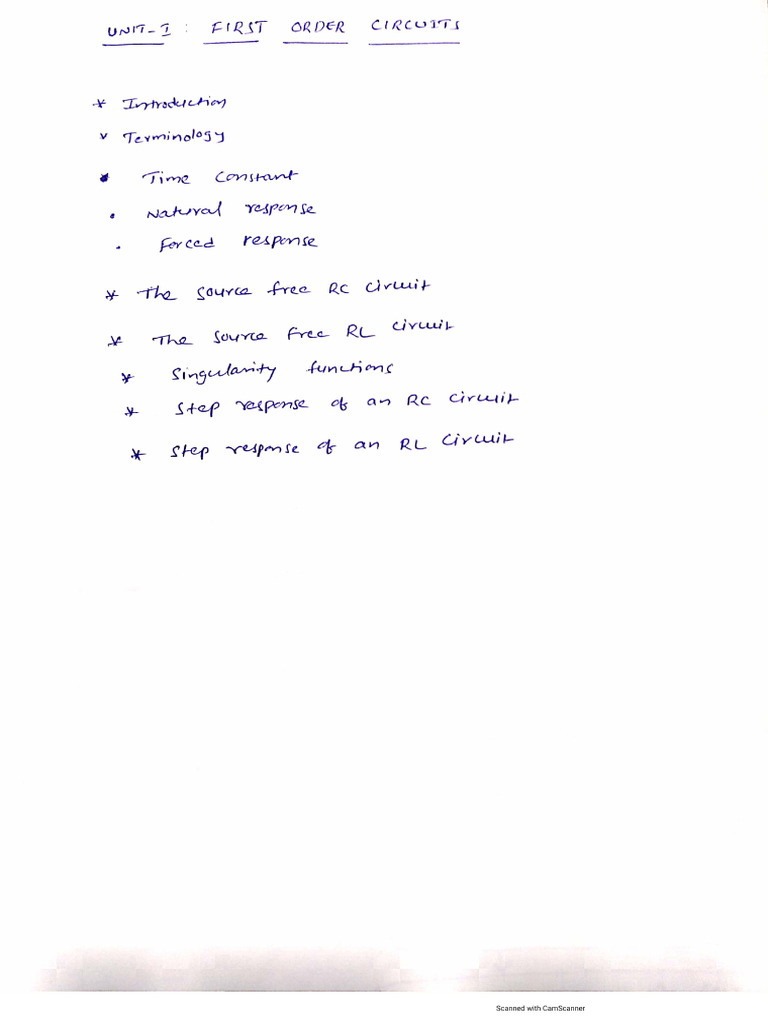 UNIT-I : FIRST ORDER CIRCUITS
* Introduction
* Terminology
• Time constant
• Natural response
• Forced response
* The source free RC circuit
* The source free RL circuit
* Singularity functions
* Step response of an RC circuit
* Step response of an RL circuit
Scanned with CamScanner